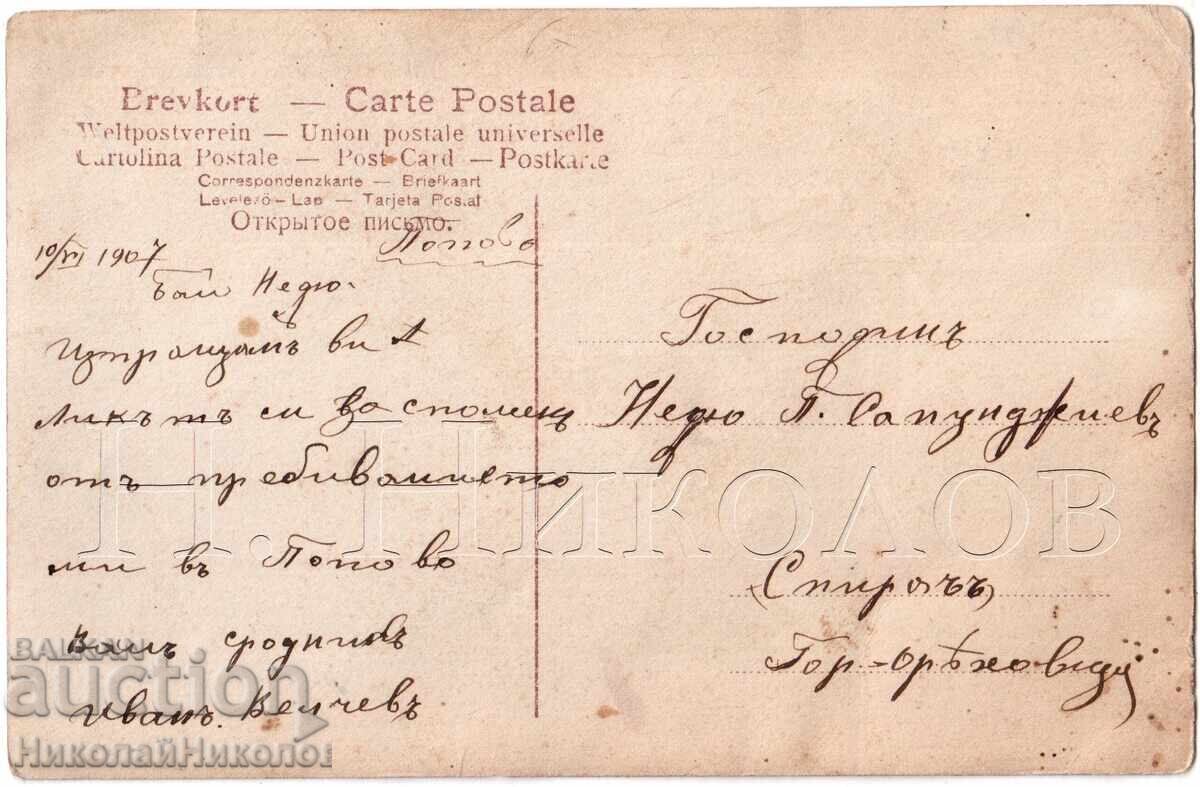 Brevkort — Carte Postale
Weltpostverein — Union postale universelle
Cartolina Postale — Post Card — Postkarte
Correspondenzkarte — Briefkaart
Levelező-Lap — Tarjeta Postal
Открытое письмо.
10/VI 1907 Попово
Бай Недю.
Изпращамъ ви
Ликътъ си за споменъ
отъ пребиванието
ми въ Попово
Вашъ сродникъ
Иванъ Велчевъ
Господинъ
Недю П. Сапунджиевъ
(Спирачъ)
Гор-орѣховица
Н. Николов
BALKAN
auction
НиколайНиколов